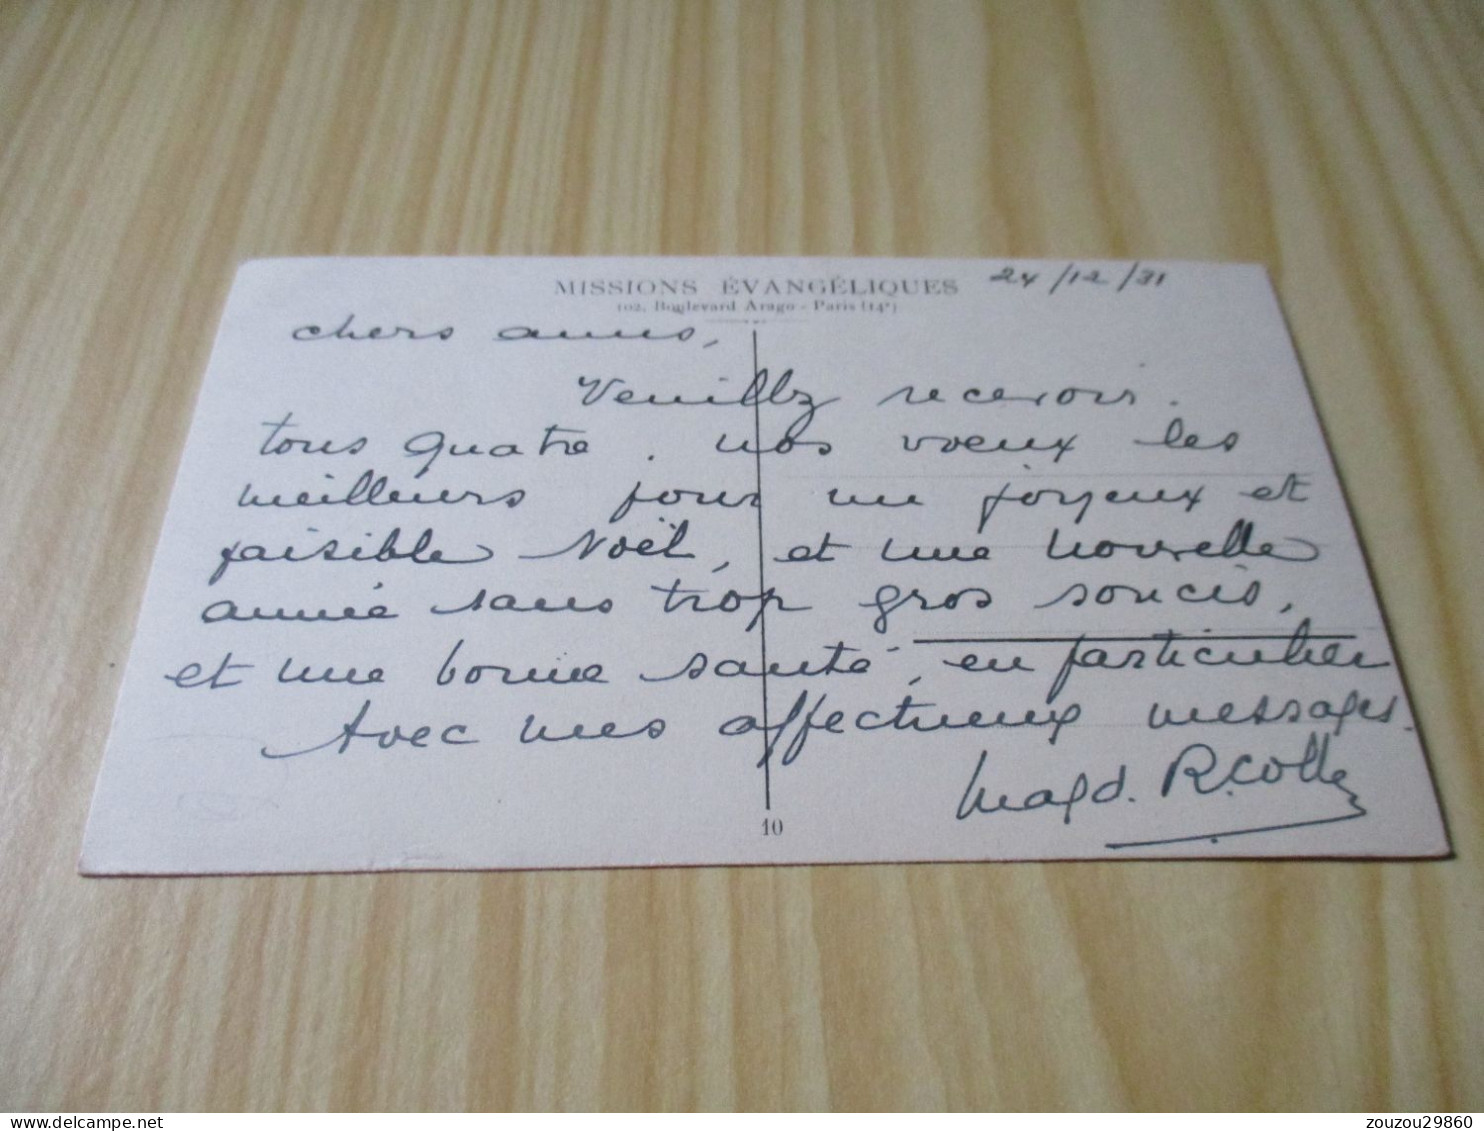 MISSIONS ÉVANGÉLIQUES 24/12/31
102, Boulevard Arago - Paris (14e)
chers amis,
Veuillez recevoir.
tous quatre, nos voeux les
meilleurs pour un joyeux et
paisible Noël, et une nouvelle
année sans trop gros soucis,
et une bonne santé, en particulier
Avec mes affectueux messages.
Magd. R. Colle
10
zouzou29860